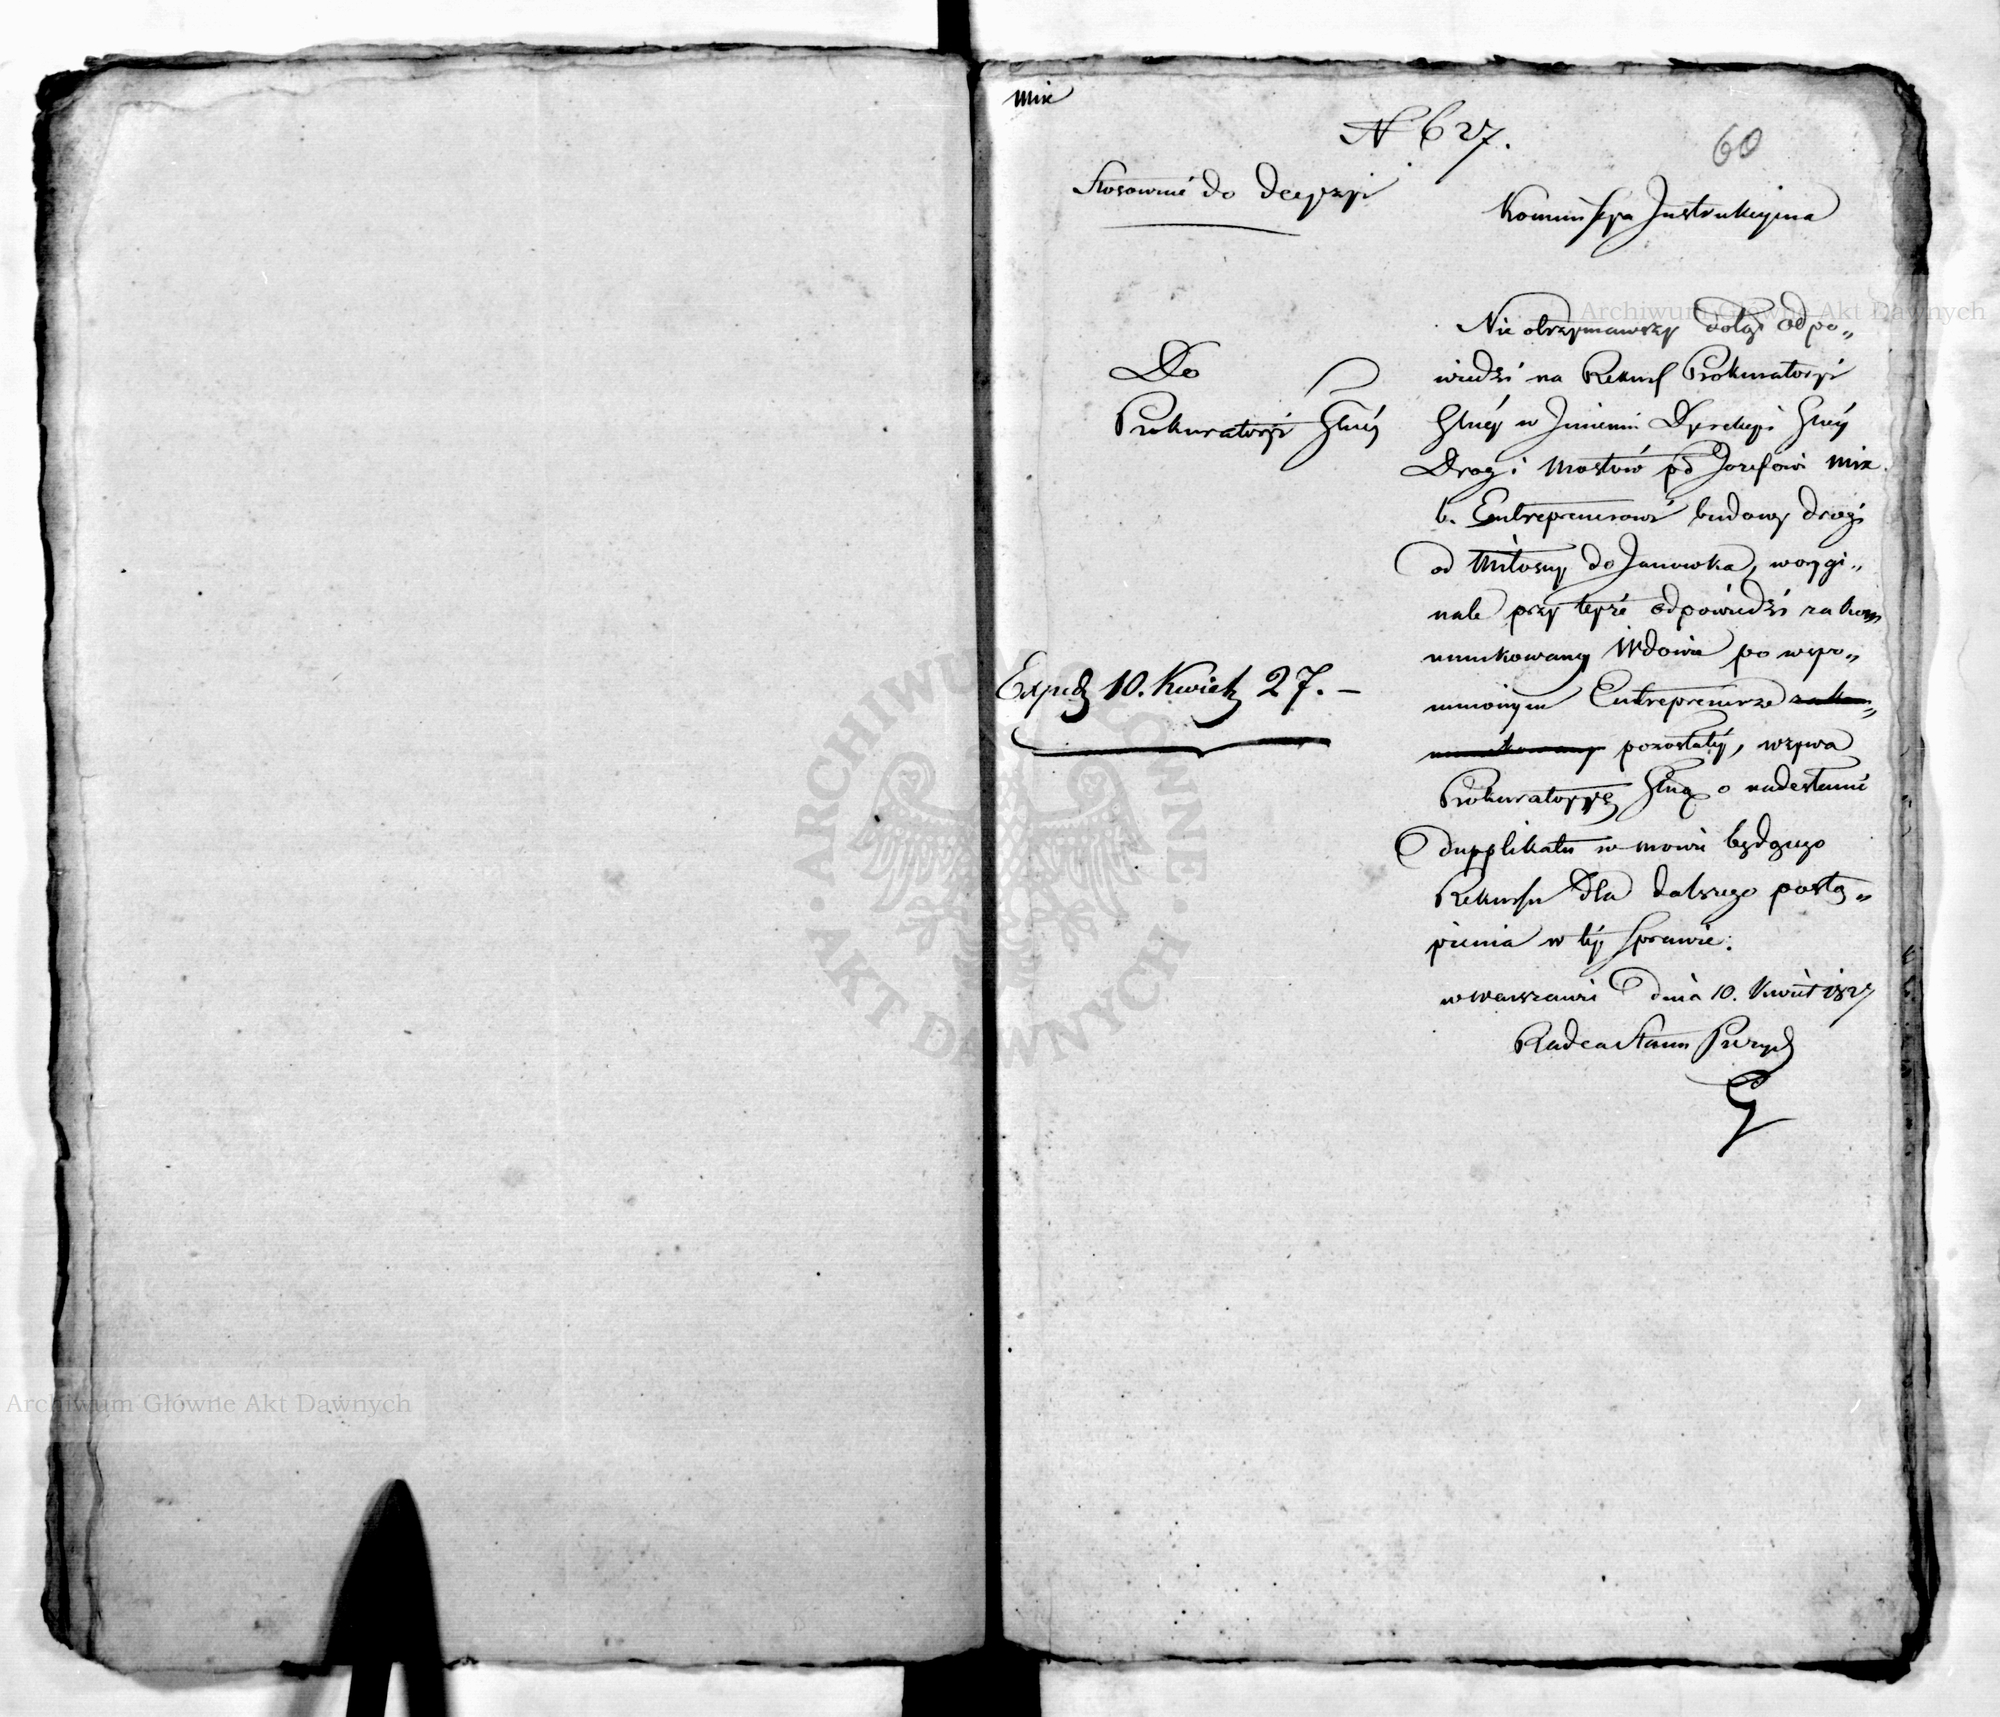 Mix
N 627.
60
Stosownie do decyzyi
Kommissya Instrukcyina
Nie otrzymawszy dotąd odpo„
wiedzi na Rekurs Prokuratoryi
Do
Prokuratoryi Głney
Głney w Imieniu Dyrekcyi Głney
Drog i Mostów pd Jozefowi Mix
b. Entreprenerowi budowy drogi
od Miłosny do Janowka, w orygi„
nale przy teyże odpowiedzi zakom
munikowany Wdowie po wspo„
Exped 10. Kwiet 27. –
mnionym Entreprenerze zako„
munikowany pozostałey, wzywa
Prokuratoryą Głną o nadesłanie
dupplikatu w mowie będącego
Rekursu dla dalszego postą„
pienia w tey sprawie.
w Warszawie dnia 10. Kwiet 1827
Radca Stanu Prezyd
Archiwum Główne Akt Dawnych
ARCHIWUM GŁÓWNE • AKT DAWNYCH •
Archiwum Główne Akt Dawnych